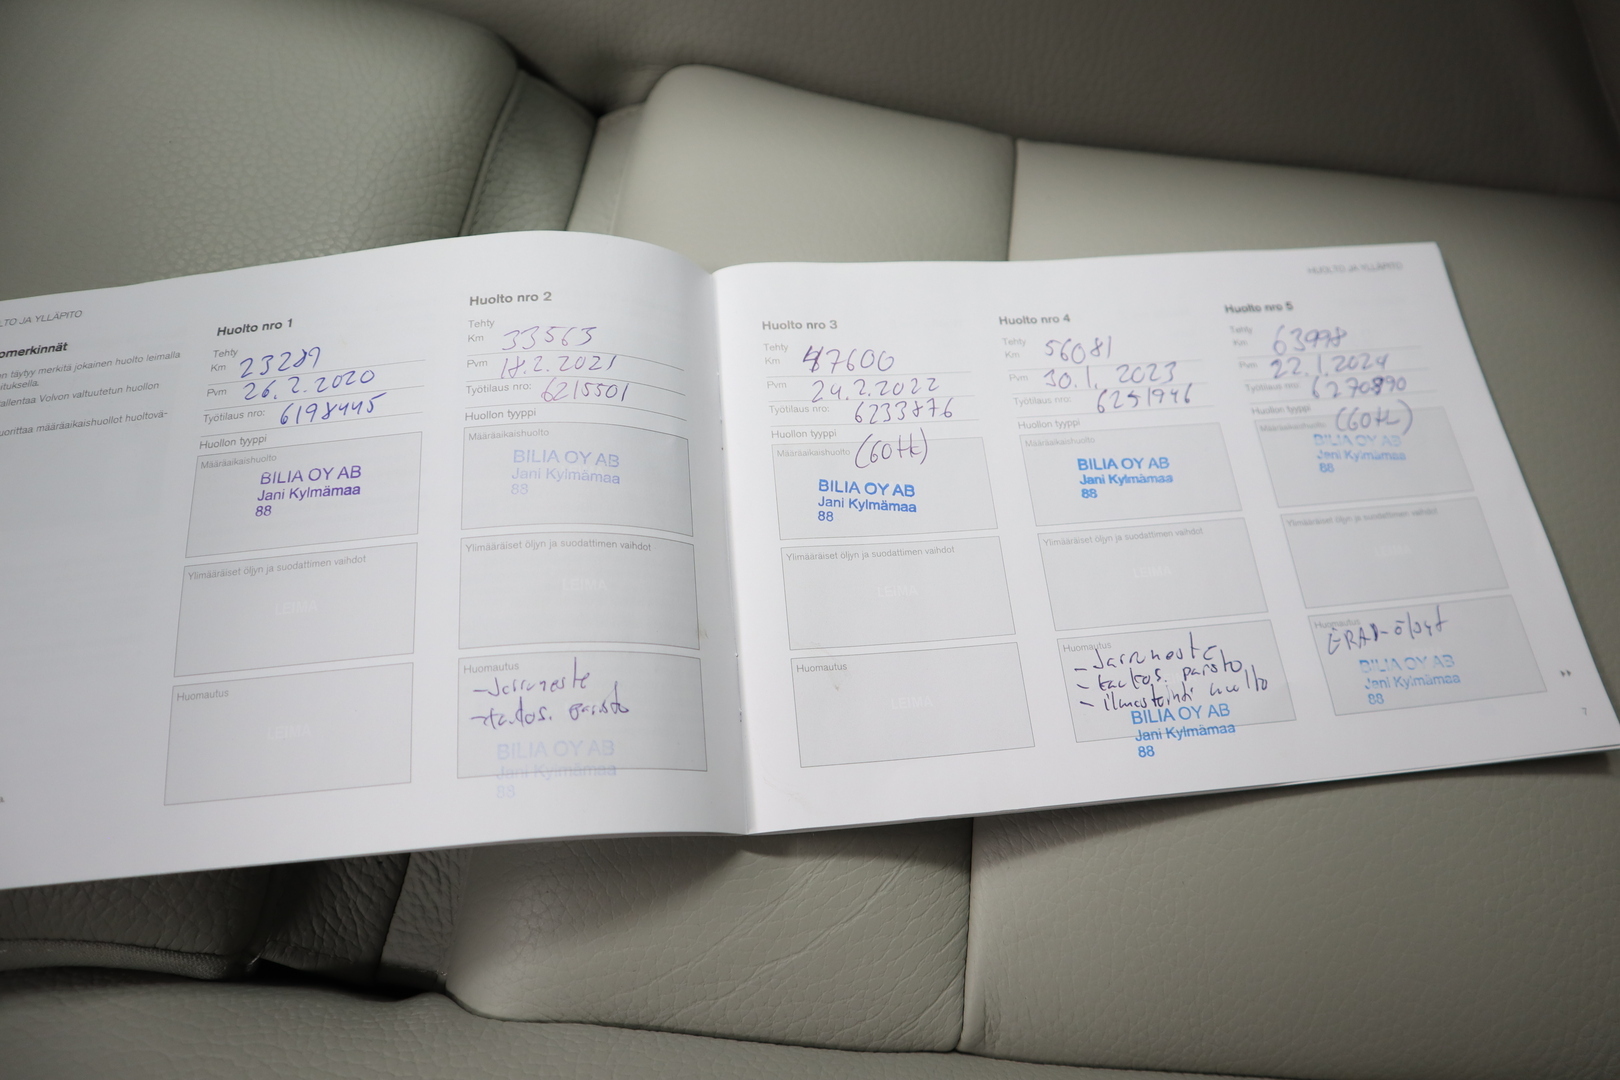 LTO JA YLLÄPITO
omerkinnät
n täytyy merkitä jokainen huolto leimalla
ituksella.
allentaa Volvon valtuutetun huollon
uorittaa määräaikaishuollot huoltovä-
Huolto nro 1
Tehty
Km 23289
Pvm 26.2.2020
Työtilaus nro: 6198445
Huollon tyyppi
Määräaikaishuolto
BILIA OY AB
Jani Kylmämaa
88
Ylimääräiset öljyn ja suodattimen vaihdot
LEIMA
Huomautus
LEIMA
Huolto nro 2
Tehty
Km 33563
Pvm 18.2.2021
Työtilaus nro: 6215501
Huollon tyyppi
Määräaikaishuolto
BILIA OY AB
Jani Kylmämaa
88
Ylimääräiset öljyn ja suodattimen vaihdot
LEIMA
Huomautus
- Jarruneste
- kaukos. paristo
BILIA OY AB
Jani Kylmämaa
88
HUOLTO JA YLLÄPITO
Huolto nro 3
Tehty
Km 47600
Pvm 24.2.2022
Työtilaus nro: 6233876
Huollon tyyppi
Määräaikaishuolto (60tk)
BILIA OY AB
Jani Kylmämaa
88
Ylimääräiset öljyn ja suodattimen vaihdot
LEIMA
Huomautus
LEIMA
Huolto nro 4
Tehty
Km 56081
Pvm 30.1. 2023
Työtilaus nro: 6251946
Huollon tyyppi
Määräaikaishuolto
BILIA OY AB
Jani Kylmämaa
88
Ylimääräiset öljyn ja suodattimen vaihdot
LEIMA
Huomautus
- Jarruneste
- kaukos. paristo
- ilmastointi huolto
BILIA OY AB
Jani Kylmämaa
88
Huolto nro 5
Tehty
Km 63998
Pvm 22.1.2024
Työtilaus nro: 6270890
Huollon tyyppi (60tk)
Määräaikaishuolto
BILIA OY AB
Jani Kylmämaa
88
Ylimääräiset öljyn ja suodattimen vaihdot
LEIMA
Huomautus
ERAD-öljyt
BILIA OY AB
Jani Kylmämaa
88
7